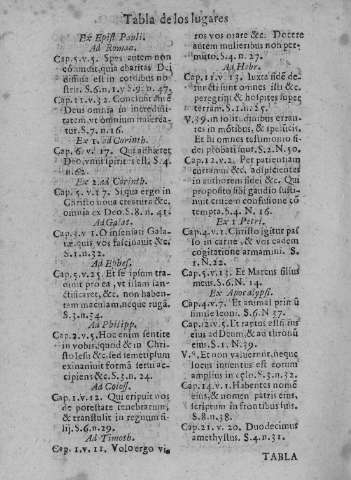 Tabla de los lugares
Ex Epist. Pauli.
Ad Roman.
Cap. 5. v. 5. Spes autem non
cõfundit, quia charitas Dei
diffusa est in cordibus no-
stris. S. 6. n. 1. y S. 9. n. 47.
Cap. 11. v. 32. Conclusit enim
Deus omnia in incredu-
tatem, vt omnium miserea-
tur. S. 7. n. 16.
Ex 1. ad Corinth.
Cap. 6. v. 17. Qui adhæret
Deo, vnus spiritus est. S. 4.
n. 62.
Ex 2. ad Corinth.
Cap. 5. v. 17. Si qua ergo in
Christo noua creatura &c.
omnia ex Deo. S. 8. n. 41.
Ad Galat.
Cap. 3. v 1. O insensati Gala-
tæ, quis vos fascinauit &c.
S. 1. n. 32.
Ad Ephes.
Cap. 5. v. 25. Et se ipsum tra-
didit pro ea, vt illam san-
ctificaret, &c. non haben-
tam maculam, neque rugã.
S. 3. n. 34.
Ad Philipp.
Cap. 2. v. 5. Hoc enim sentite
in vobis, quod & in Chri-
sto Iesu &c. sed semetipsum
exinaniuit formã serui ac-
cipiens &c. S. 3. n. 24.
Ad Coloss.
Cap. 1. v. 12. Qui eripuit nos
de potestate tenebrarum,
& transtulit in regnum fi-
lij. S. 6. n. 29.
Ad Timoth.
Cap. 1. v. 11. Volo ergo vi-
ros vos orare &c. Docere
autem mulieribus non per-
mitto. S. 4. n. 27.
Ad Hebr.
Cap. 11. v 13. Iuxta fidẽ de-
functi sunt omnes isti &c.
peregrini & hospites super
terram. S. 1. n. 25.
V. 39. in solitudinibus erran-
tes in mõtibus, & speluncis.
Et hi omnes testimonio fi-
dei probati sunt. S. 2. N. 30.
Cap. 12. v. 2. Per patientiam
curramus &c. adspicientes
in authorem fidei &c. Qui
proposito sibi gaudio susti-
nuit crucem confusione cõ
tempta. S. 4. N. 16.
Ex 1 Petri.
Cap. 4. v. 1. Christo igitur pas
so in carne, & vos eadem
cogitatione armamini. S.
1. N. 22.
Cap. 5. v. 13. Et Marcus filius
meus. S. 6. N. 14.
Ex Apocalypsi.
Cap. 4. v. 7. Et animal primũ
simile leoni. S. 6. N 37.
Cap. 12. v. 5. Et raptus est filius
eius ad Deum, & ad thronũ
eius. S. 1. N. 39.
V. 8. Et non valuerunt, neque
locus inuentus est eorum
amplius in cælo. S. 3. n. 32.
Cap. 14. v. 1. Habentes nomẽ
eius, & nomen patris eius,
scriptum in frontibus suis.
S. 8. n. 38.
Cap. 21. v. 20. Duodecimus
amethystus. S. 4. n. 31.
TABLA